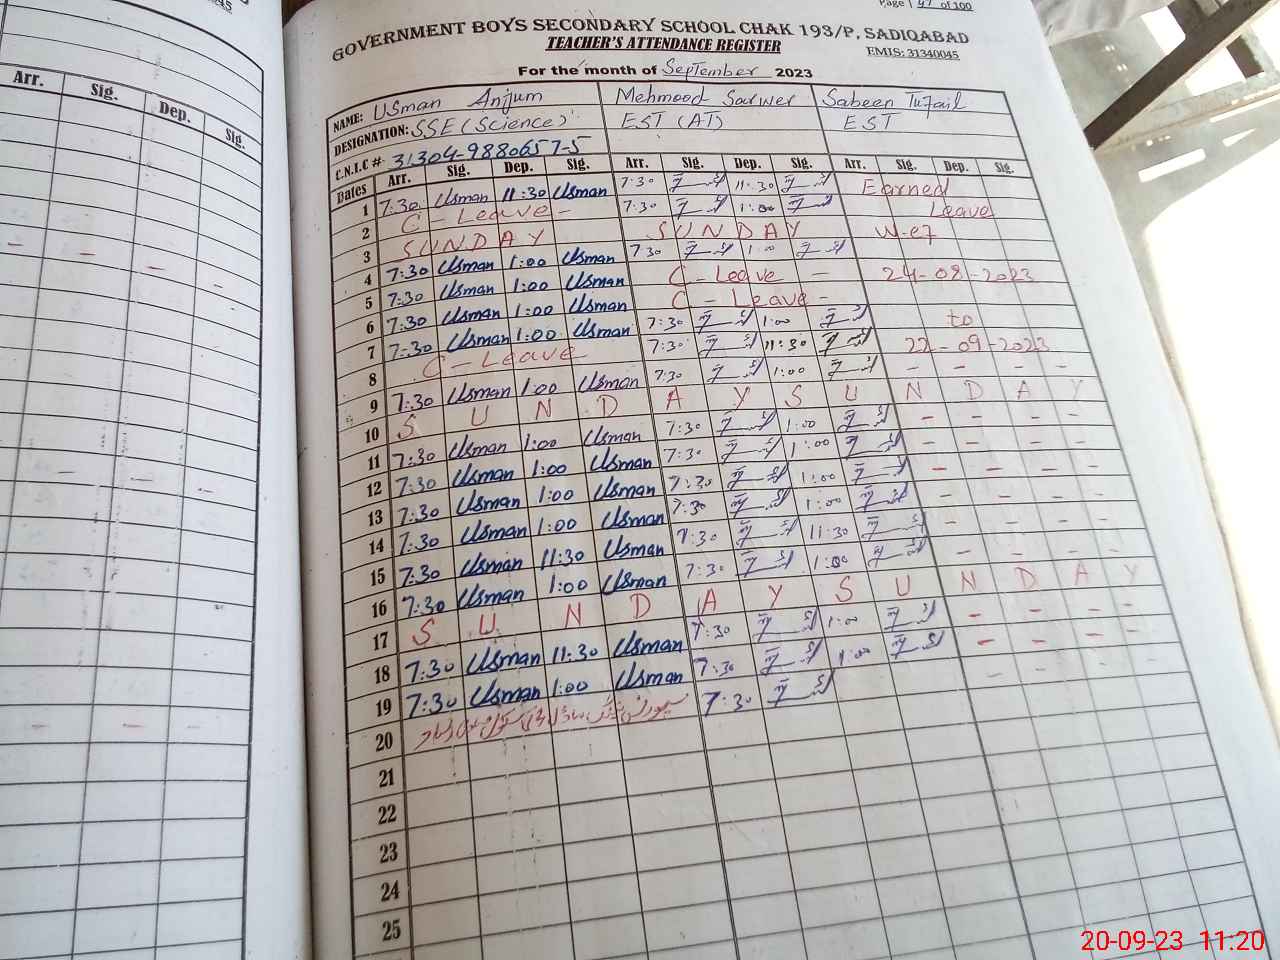 Page | 47 of 100
GOVERNMENT BOYS SECONDARY SCHOOL CHAK 193/P, SADIQABAD
TEACHER'S ATTENDANCE REGISTER
EMIS: 31340045
For the month of September 2023
NAME: Usman Anjum Mehmood Sarwer Sabeen Tufail
DESIGNATION: SSE (Science) EST (AT) EST
C.N.I.C #: 31304-9880657-5
Dates Arr. Sig. Dep. Sig. Arr. Sig. Dep. Sig. Arr. Sig. Dep. Sig.
1 7:30 Usman 11:30 Usman 7:30 11:30 Earned
2 C - Leave - 7:30 1:00 Leave
3 SUNDAY SUNDAY w.e.f
4 7:30 Usman 1:00 Usman 7:30 1:00
5 7:30 Usman 1:00 Usman C - Leave - 24-08-2023
6 7:30 Usman 1:00 Usman C - Leave -
7 7:30 Usman 1:00 Usman 7:30 1:00 to
8 C - Leave 7:30 11:30 22-09-2023
9 7:30 Usman 1:00 Usman 7:30 1:00 - - - -
10 S U N D A Y S U N D A Y
11 7:30 Usman 1:00 Usman 7:30 1:00 - - - -
12 7:30 Usman 1:00 Usman 7:30 1:00 - - - -
13 7:30 Usman 1:00 Usman 7:30 1:00 - - - -
14 7:30 Usman 1:00 Usman 7:30 1:00 - - - -
15 7:30 Usman 11:30 Usman 7:30 11:30 - - - -
16 7:30 Usman 1:00 Usman 7:30 1:00 - - - -
17 S U N D A Y S U N D A Y
18 7:30 Usman 11:30 Usman 7:30 1:00 - - - -
19 7:30 Usman 1:00 Usman 7:30 1:00 - - - -
20 7:30 - - - -
21
22
23
24
25
Arr. Sig. Dep. Sig.
20-09-23 11:20